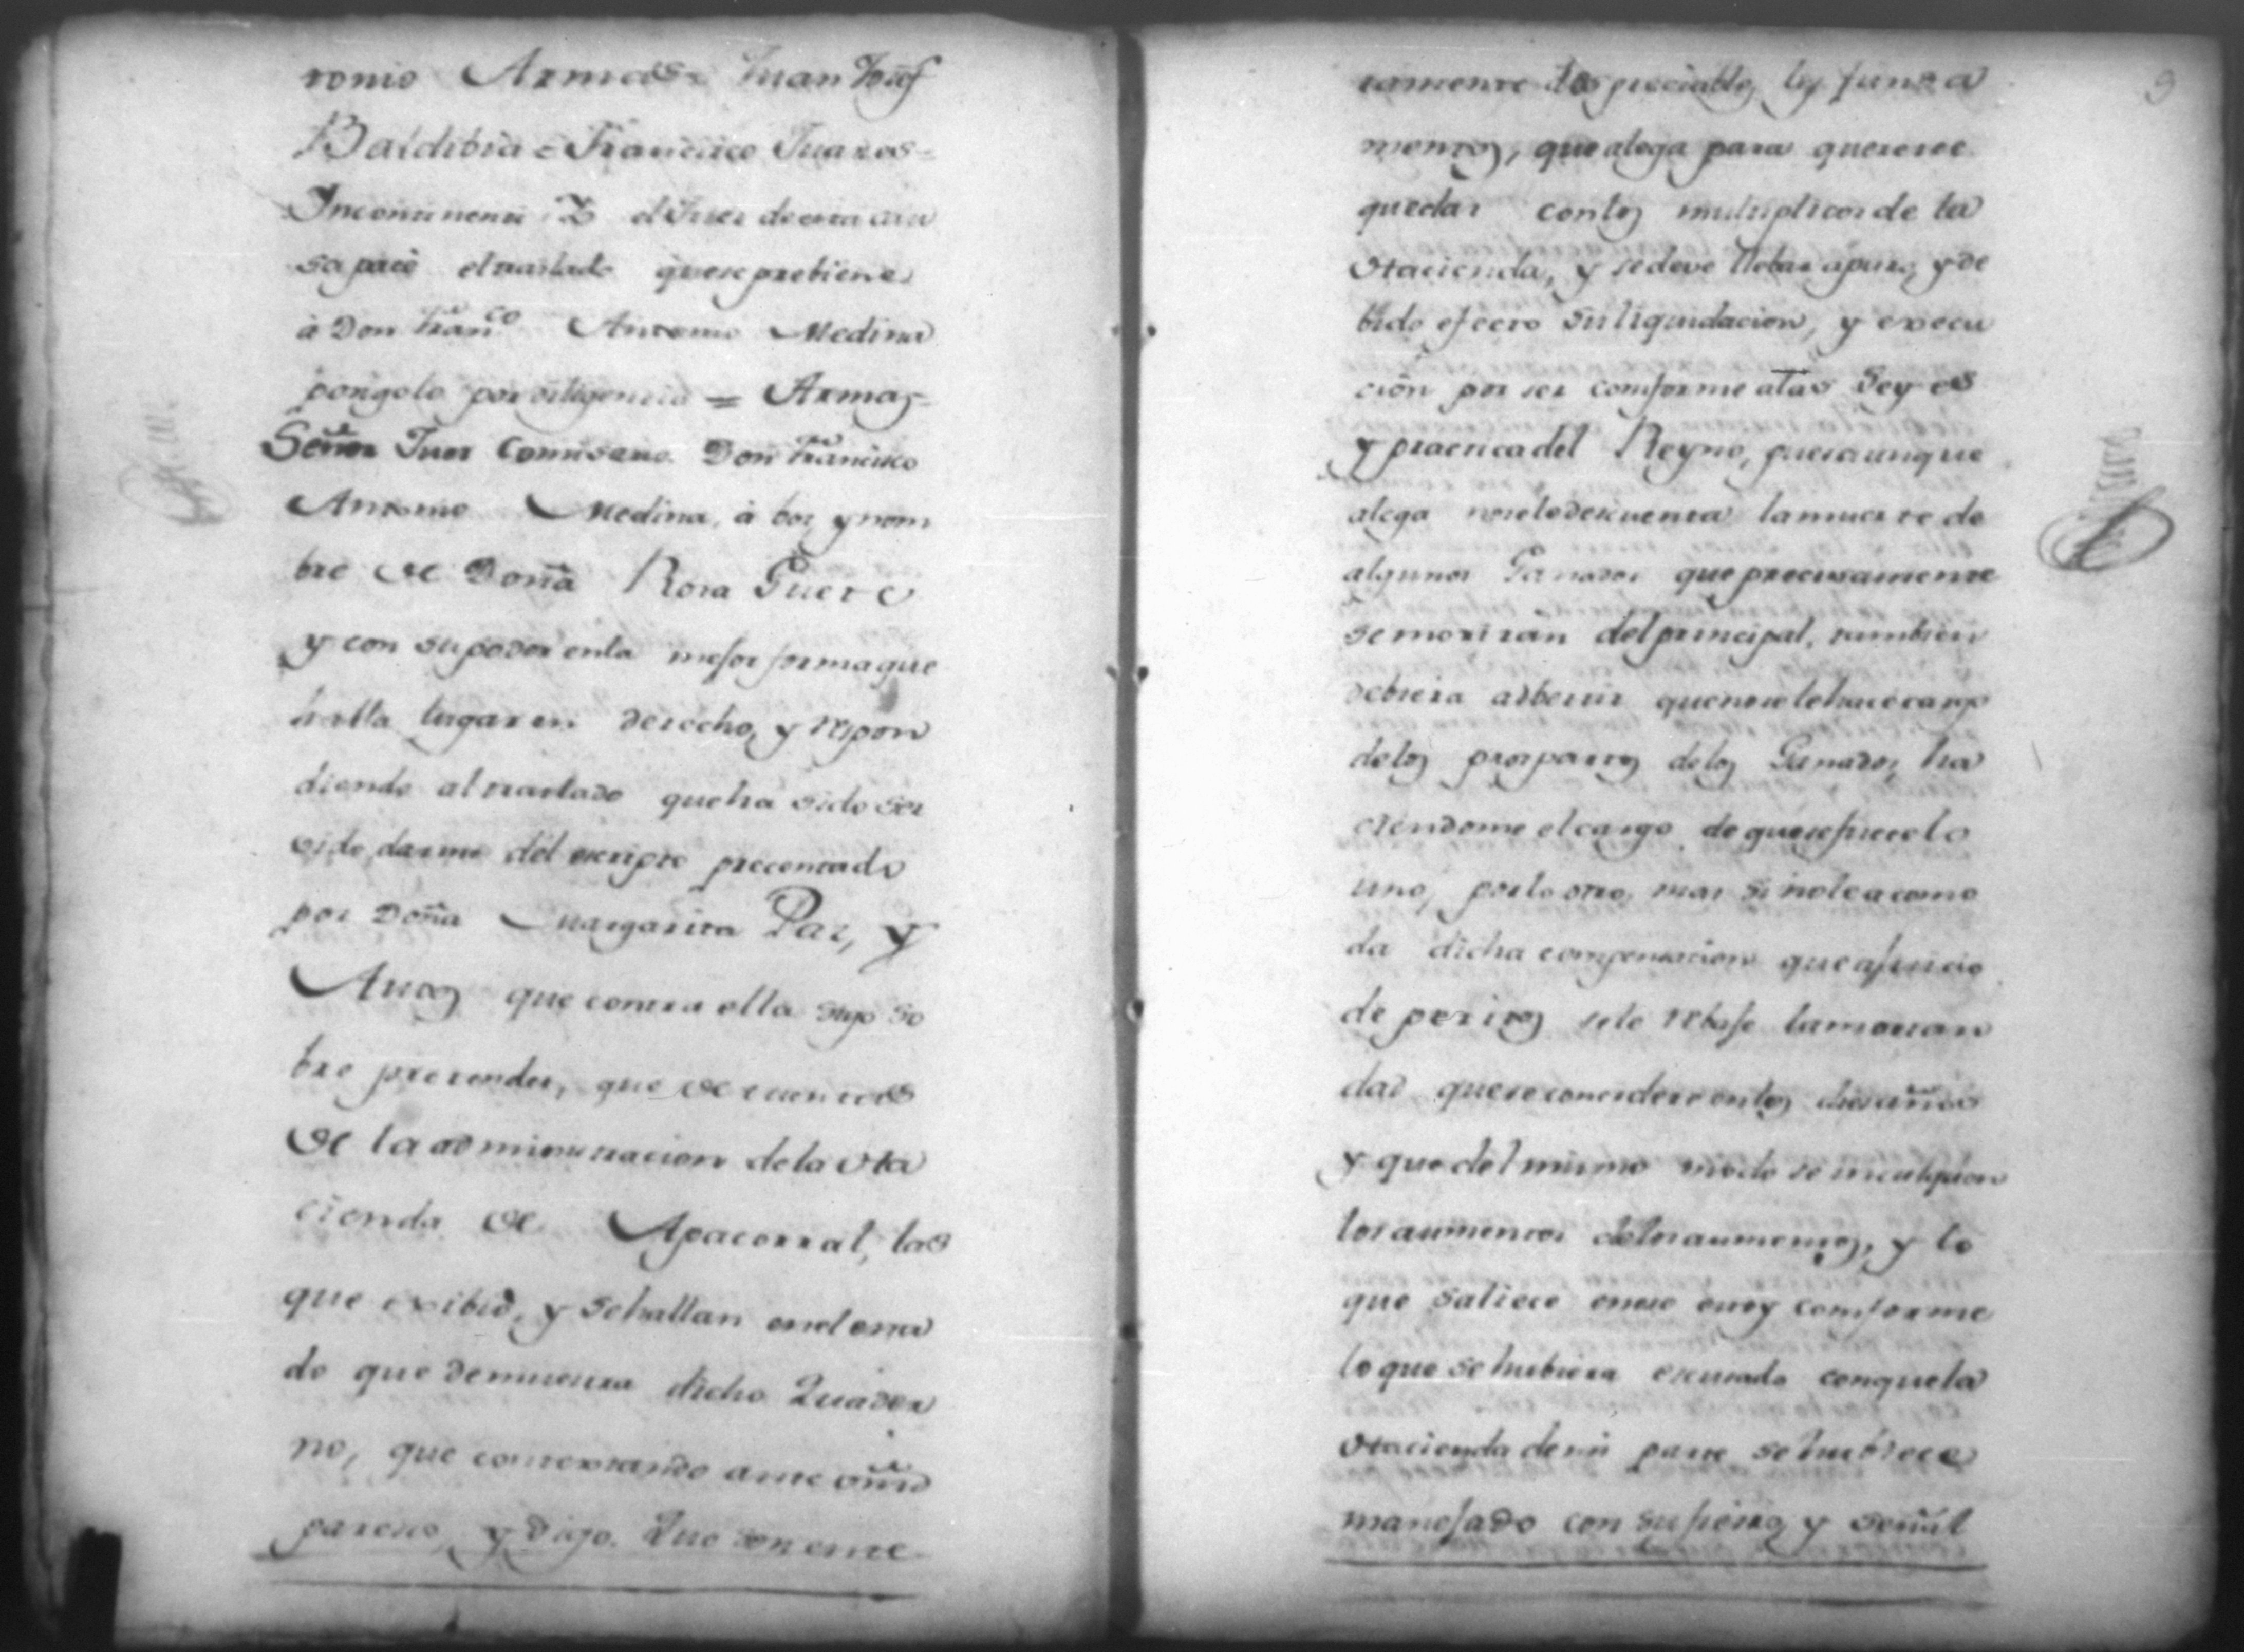 tonio Armas= Juan Josef
Baldibia = Francisco Juares=
Incontinenti Yo el Juez de esta cau
sa pacé el traslado que se prebiene
à Don Fran.co Antonio Medina
pongolo por diligencia = Armas=
Señor Juez Comisario. Don Francisco
Antonio Medina, à boz y nom
bre de Doña Rosa
y con su poder en la mejor forma que
halla lugar en derecho, y respon
diendo al traslado que ha sido ser
vido darme del escripto precentado
por Doña Margarita Paz, y
Autos que contra ella sigo so
bre pretender, que de cuentas
de la administracion de la Ha
cienda de Apacorral, las
que exibió, y se hallan en el esta
do que demuestra dicho Quader
no, que contextando ante
paresco, y digo. Que son ente
9
ramente despreciables los funda
mentos, que alega para quererse
quedar con los multiplicos de la
Hacienda, y se deve llebar apuro, y de
bido efecto su liquidacion, y execu
ción por ser comforme a las Leyes
y practica del Reyno, pues aunque
alega no se le descuenta la muerte de
algunos Ganados que precisamente
se morirán del principal, tambien
debiera adbertir que no se le hace cargo
de los de los Ganados, ha
ciendome el cargo de que se fuece lo
uno, por lo otro, mas si no le acomo
da dicha compensacion que a juicio
de peritos se le rebaje la mortan
dad que se concidere en los dies años
y que del mismo modo se inculquen
los aumentos de los aumentos, y lo
que saliece entre comforme
lo que se hubiera escusado con que la
Hacienda de mi parte se hubiece
manejado con su fierro, y señál